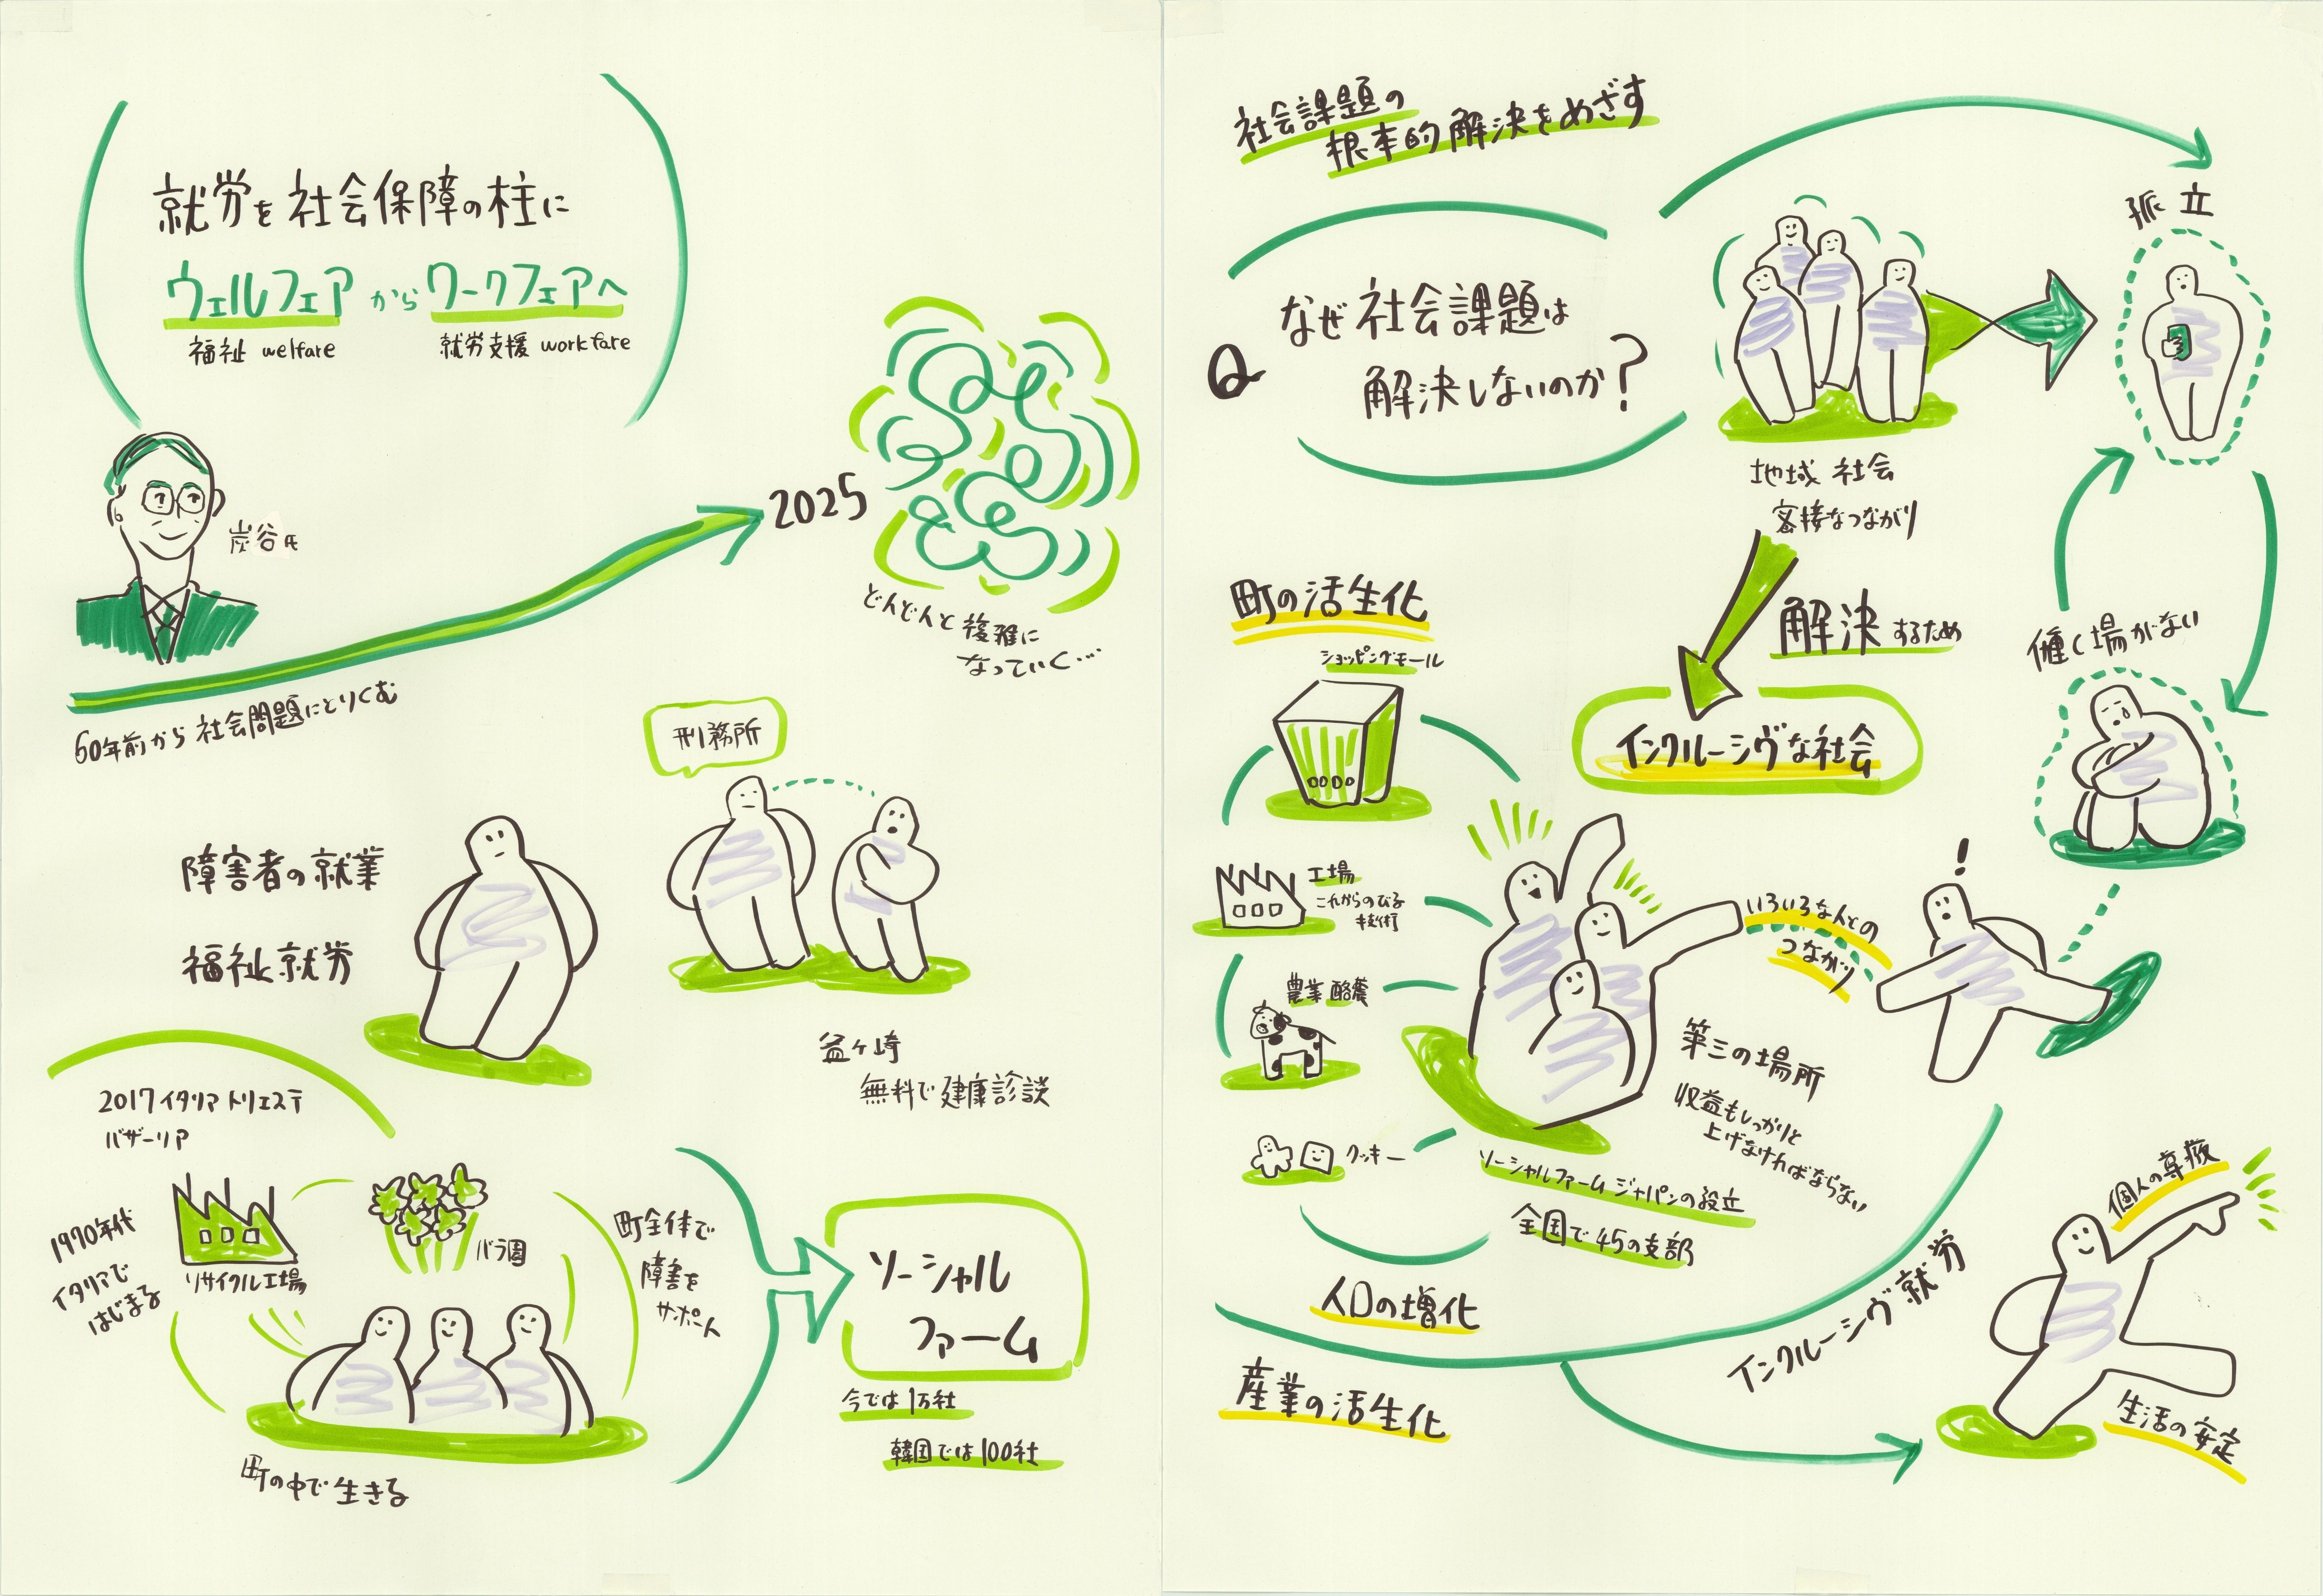 就労を社会保障の柱に
ウェルフェアからワークフェアへ
福祉 welfare
就労支援 workfare
炭谷氏
60年前から社会問題にとりくむ
2025
どんどんと複雑に
なっていく…
障害者の就業
福祉就労
刑務所
釜ヶ崎
無料で健康診談
2017 イタリア トリエステ
バザーリア
1970年代
イタリアで
はじまる
リサイクル工場
バラ園
町全体で
障害を
サポート
町の中で生きる
ソーシャル
ファーム
今では1万社
韓国では100社
社会課題の
根本的解決をめざす
Q
なぜ社会課題は
解決しないのか?
地域社会
密接なつながり
孤立
働く場がない
解決するため
インクルーシヴな社会
町の活生化
ショッピングモール
工場
これからのびる
技術
農業 酪農
クッキー
いろいろな人との
つながり
!
第三の場所
収益もしっかりと
上げなければならない
ソーシャルファームジャパンの設立
全国で45の支部
人口の増化
産業の活生化
インクルーシヴ就労
個人の尊厳
生活の安定